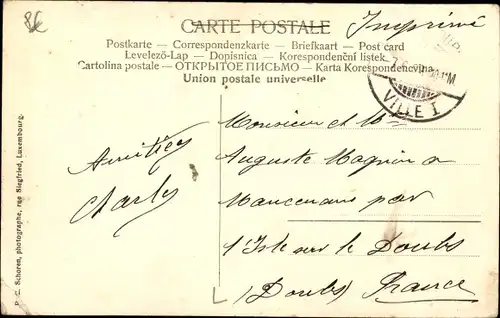 CARTE POSTALE
Imprimé
Postkarte — Correspondenzkarte — Briefkaart — Post card
Levelező-Lap — Dopisnica — Korespondenční listek
Cartolina postale — ОТКРЫТОЕ ПИСЬМО — Karta Korespondencyjna
Union postale universelle
VILLE I
Monsieur et M
Auguste Magnin a
Mancenans par
l'Isle sur le Doubs
(Doubs) France
Amitiés
Charles
P. C. Schoren, photographe, rue Siegfried, Luxembourg.